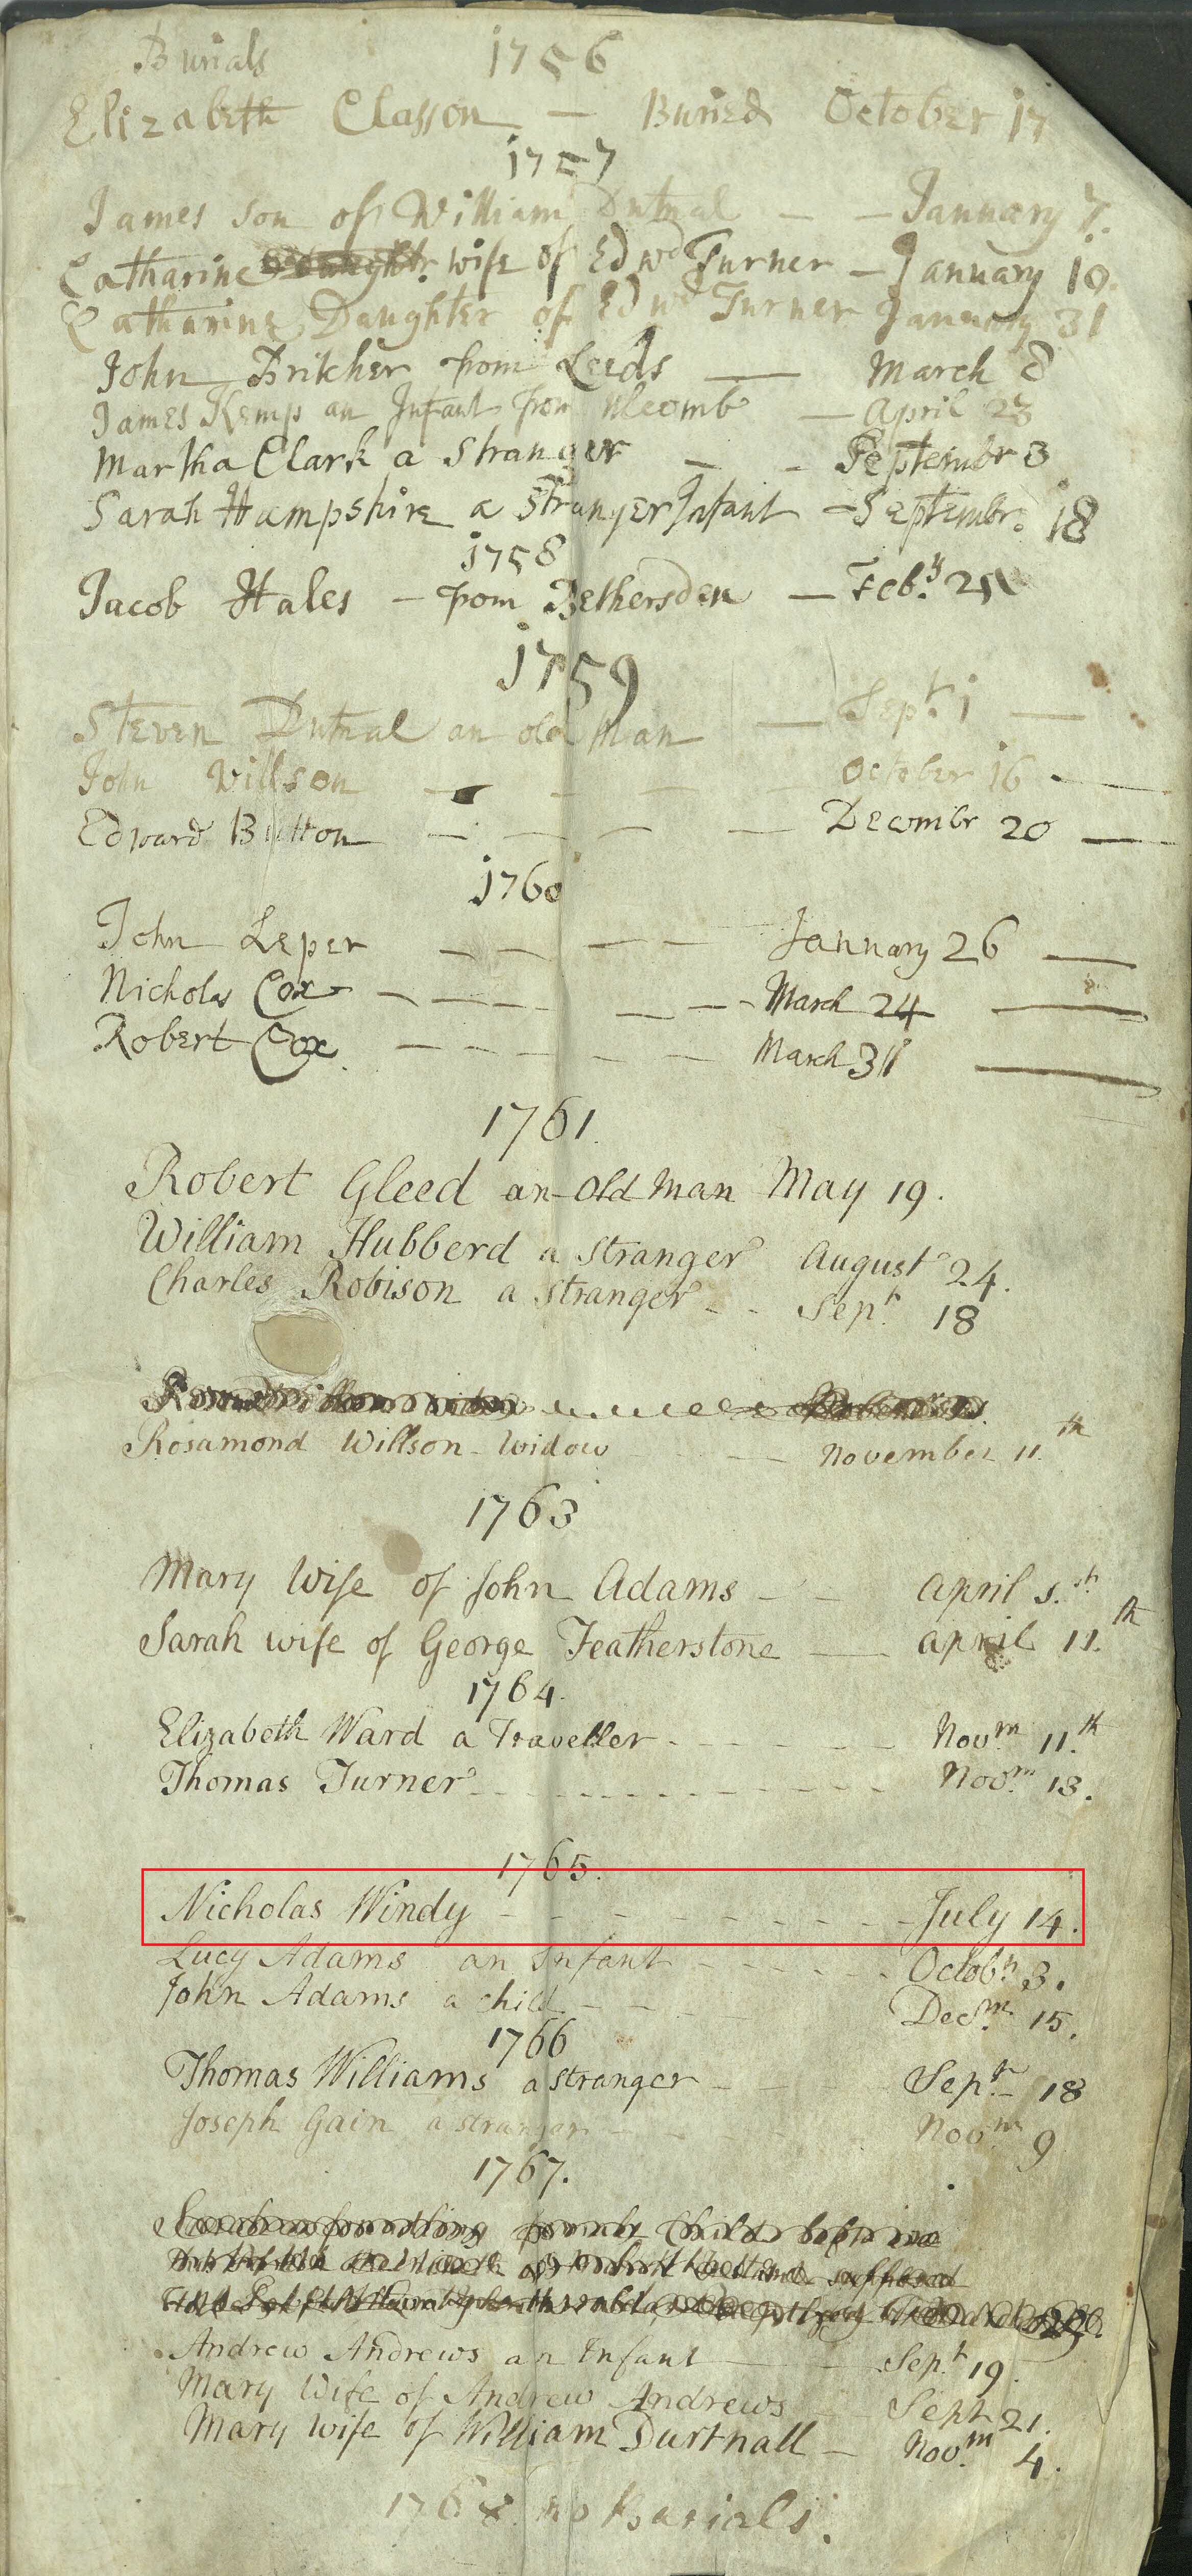 Burials 1756
Elizabeth Classon — Buried October 17
1757
James son of William Dutnal — — January 7.
Catharine wife of Edwd Turner — January 10.
Catharine Daughter of Edwd Turner January 31
John Britcher from Leeds — March 8
James Kemp an Infant from Ulcomb — April 23
Martha Clark a Stranger — - Septembr 3
Sarah Hampshire a Stranger Infant - Septembr. 18
1758
Jacob Hales — from Bethersden — Feb.y
1759
Steven Dutnal an old Man — Sept. 1 —
John Willson — — — October 16 —
Edward Button — — — — Decembr 20 —
1760
John Leper — — — — January 26 —
Nicholas Cox — — — — — — March 24 —
Robert Cox. — — — — — — March 31 —
1761.
Robert Gleed an Old Man May 19.
William Hubberd a Stranger August 24.
Charles Robison a Stranger - - Sept. 18
Rosamond Willson - Widow - - — November 11.th
1763
Mary Wife of John Adams — — April
Sarah wife of George Featherstone — april 11.th
1764.
Elizabeth Ward a Traveller - - - - - - Novm 11.th
Thomas Turner - - - - - - - - - - Novm. 13.
1765.
Nicholas Windy - - - - - - - - - - July 14.
Lucy Adams an Infant - - - - - - Octobr 3.
John Adams a child - - - - Decm. 15.
1766
Thomas Williams a stranger - - - Sept. - 18
Joseph Gain a stranger - - - - Novm 9
1767.
Andrew Andrews an Infant — — Sept. 19.
Mary Wife of Andrew Andrews — Sept 21.
Mary wife of William Durtnall — Novm. 4.
1768 no Burials.